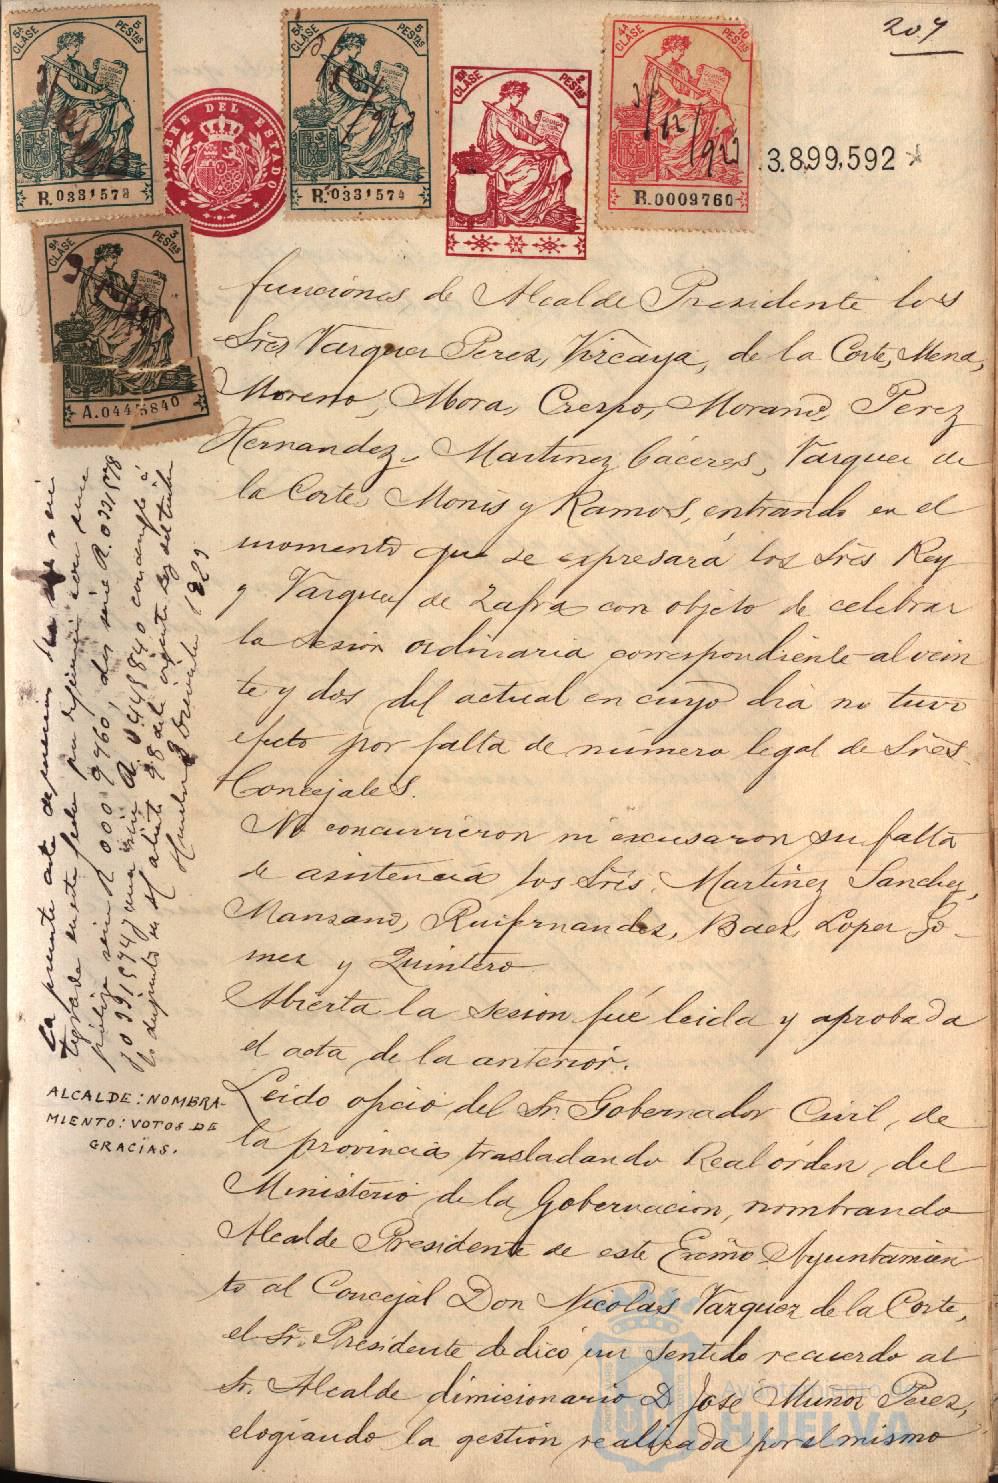 207
5ª CLASE 5 PESTAS
R.0331573
TIMBRE DEL ESTADO
5ª CLASE 5 PESTAS
R.0331574
CLASE 2 PESTAS
4ª CLASE 10 PESTAS
R.0009760
3.899.592
CLASE 3 PESTAS
A.0445840
funciones de Alcalde Presidente los
Sres Vazquez Perez, Vizcaya, de la Corte, Mena,
Moreno, Mora, Crespo, Morano, Perez
Hernandez, Martinez Cáceres, Vazquez de
la Corte, Monis y Ramos, entrando en el
momento que se expresará los Sres Rey
y Vazquez de Zafra con objeto de celebrar
la sesion ordinaria correspondiente al vein
te y dos del actual en cuyo dia no tuvo
efecto por falta de número legal de Sres.
Concejales.
No concurrieron ni excusaron su falta
de asistencia los Sres. Martinez Sanchez,
Manzano, Ruifernandez, Baez, Lopez Go-
mez y Quintero
Abierta la sesion fué leida y aprobada
el acta de la anterior.
Leido oficio del Sr. Gobernador Civil, de
la provincia trasladando Real órden, del
Ministerio de la Gobernacion, nombrando
Alcalde Presidente de este Excmo Ayuntamien
to al Concejal Don Nicolas Vazquez de la Corte,
el Sr. Presidente dedicó un sentido recuerdo al
Sr. Alcalde dimisionario D. José Muñoz Perez,
elogiando la gestion realizada por el mismo
La presente acta
tegrada en esta fecha por
póliza serie R 0009760, dos serie R. 0331578
y 0331574 y una serie A. 0445840 con arreglo á
lo dispuesto en el 98 de la vigente ley del timbre
Huelva
ALCALDE: NOMBRA-
MIENTO: VOTOS DE
GRACIAS.
Ayuntamiento de
HUELVA